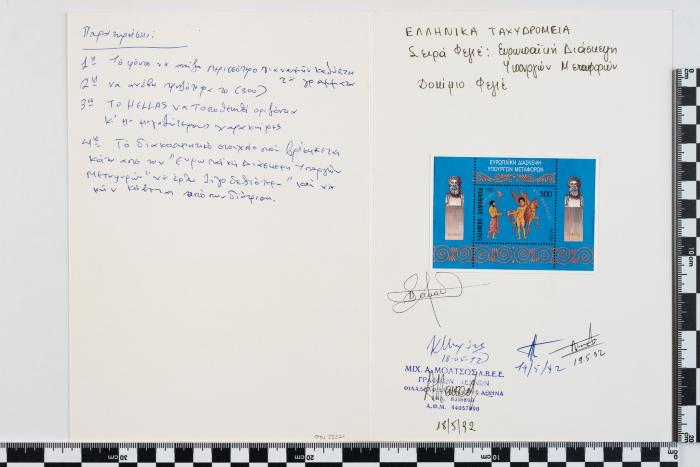 Παρατηρήσεις:
1η Το φόντο να ανοίξη περισσότερο για να μην καλύπτει
τα γράμματα
2η να ανέβη ψηλότερα το (300)
3η Το HELLAS να τοποθετηθή οριζόντια
κ' με μεγαλύτερους χαρακτήρες
4η Τό διακοσμητικό στοιχείο πού βρίσκεται
κάτω από την "Ευρωπαϊκή Διάσκεψη Υπουργών
Μεταφορών" να έρθει λίγο δεξιότερα" και να
μήν κόβεται από την διάτρηση.
ΕΛΛΗΝΙΚΑ ΤΑΧΥΔΡΟΜΕΙΑ
Σειρά Φεγιέ: Ευρωπαϊκή Διάσκεψη
Υπουργών Μεταφορών
Δοκίμιο Φεγιέ
ΕΥΡΩΠΑΪΚΗ ΔΙΑΣΚΕΨΗ
ΥΠΟΥΡΓΩΝ ΜΕΤΑΦΟΡΩΝ
ΕΛΛΗΝΙΚΗ ΔΗΜΟΚΡΑΤΙΑ
300
18-05-92
19/5/92
19.5.92
ΜΙΧ. Α. ΜΟΑΤΣΟΣ Α.Β.Ε.Ε.
ΓΡΑΦΙΚΩΝ ΤΕΧΝΩΝ
ΑΘΗΝΑ
Α.Φ.Μ. 94057890
18/5/92